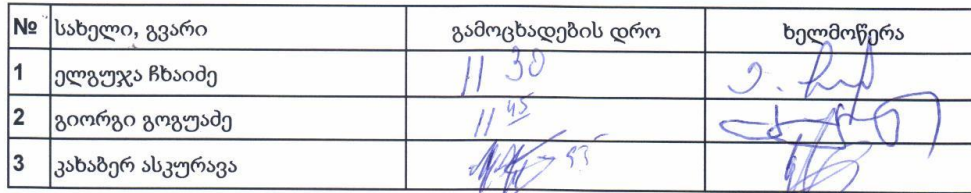 № სახელი, გვარი გამოცხადების დრო ხელმოწერა
1 ელგუჯა ჩხაიძე 11 30
2 გიორგი გოგუაძე 11 45
3 კახაბერ ასკურავა